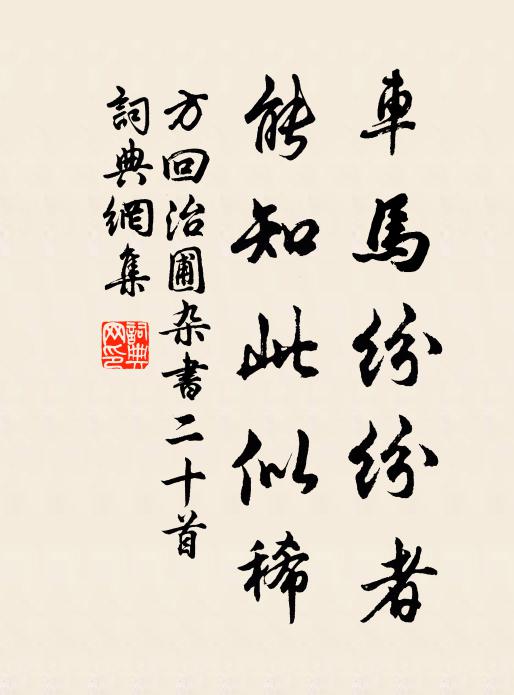 車馬紛紛者
能知此似稀
方回治圃杂書二十首
詞典網集
詞典
网印